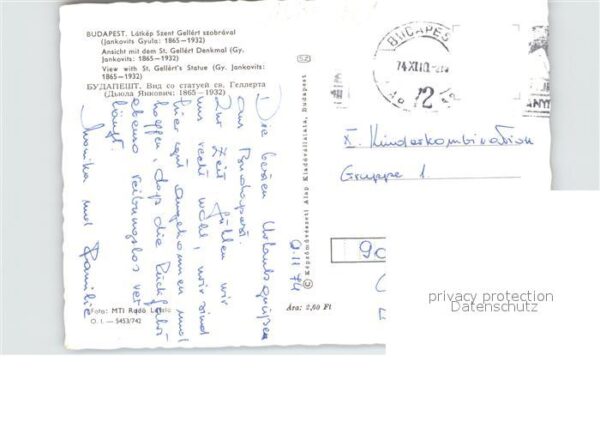 BUDAPEST. Látkép Szent Gellért szobrával
(Jankovits Gyula: 1865—1932)
Ansicht mit dem St. Gellért Denkmal (Gy.
Jankovits: 1865—1932)
View with St. Gellért's Statue (Gy. Jankovits:
1865—1932)
БУДАПЕШТ. Вид со статуей св. Геллерта
(Дьюла Янкович: 1865—1932)
Die besten Urlaubsgrüße
aus Budapest.
Zur Zeit fühlen wir
uns recht wohl, wir sind
hier gut angekommen und
hoffen, daß die Rückfahrt
ebenso reibungslos ver-
läuft.
Monika und Familie
Foto: MTI Radó László
O. I. — 5453/742
Ára: 2,60 Ft
© Képzőművészeti Alap Kiadóvállalata, Budapest
SZ
9.11.74
BUDAPES
74 XI
12
X. Kinderkombination
Gruppe 1
90
privacy protection
Datenschutz